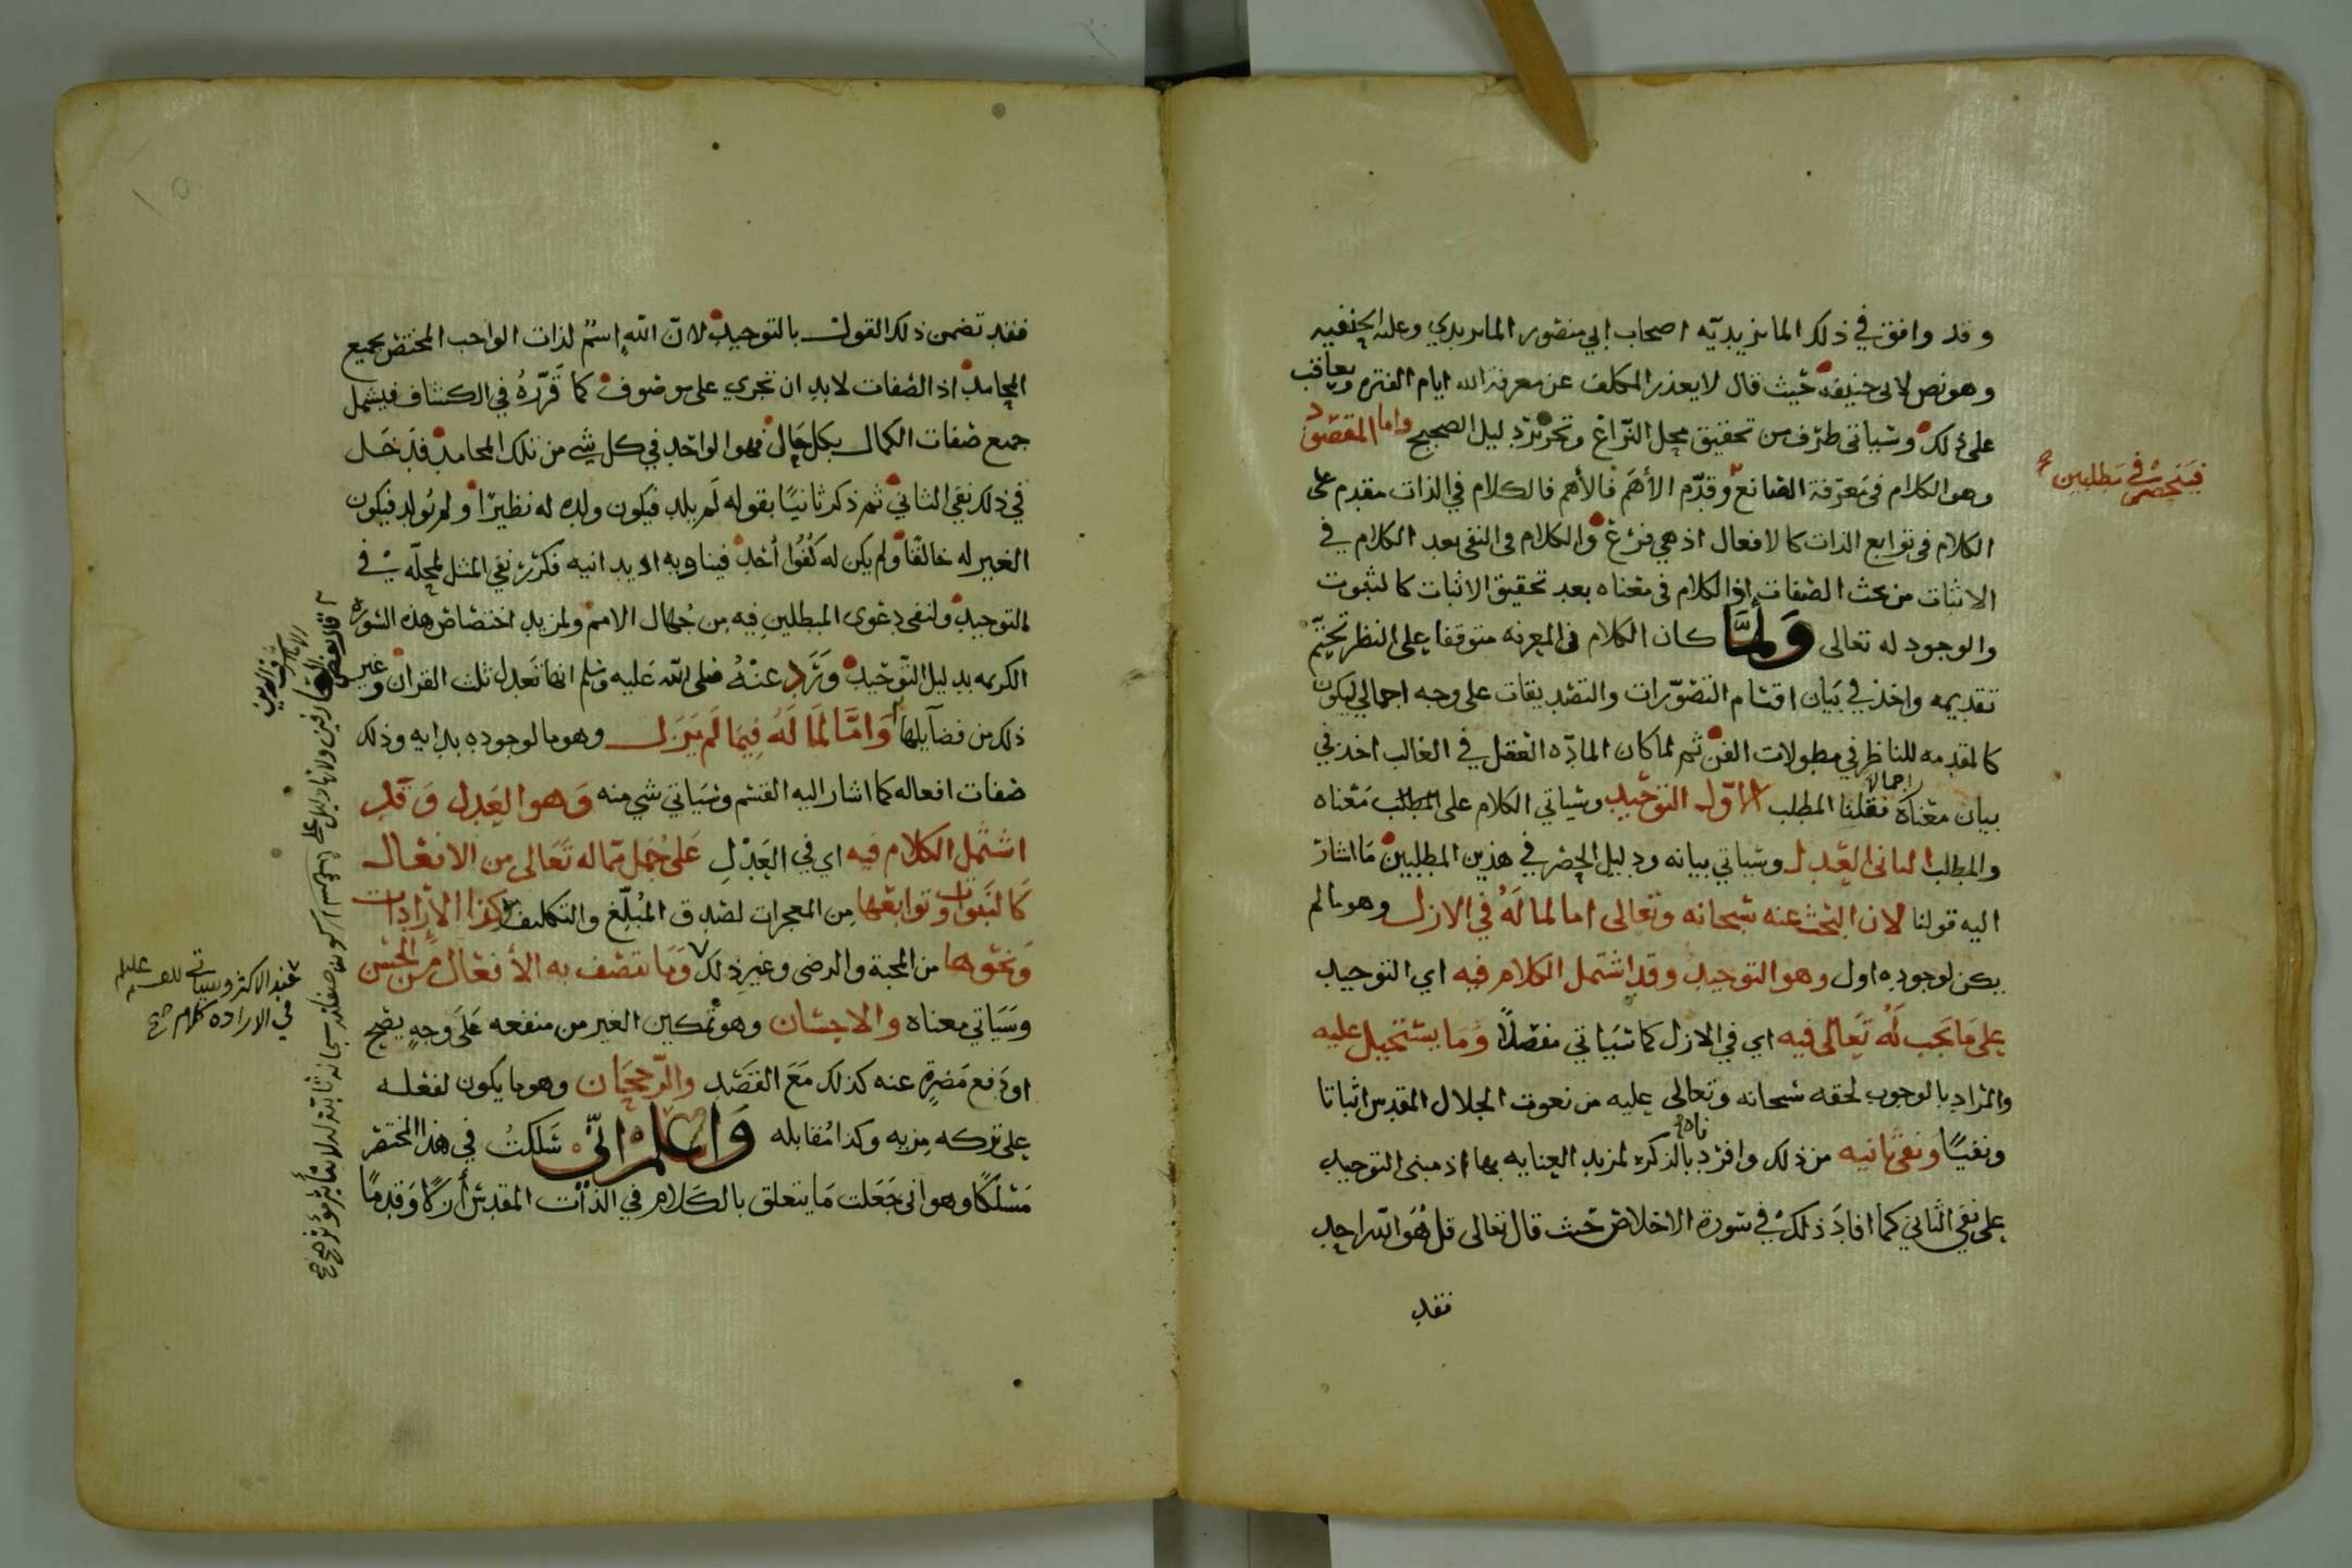 وقد وافق في ذلك الماتريديه اصحاب ابي منصور الماتريدي وعليه الحنفيه
وهو نص لابى حنيفه حيث قال لا يعذر المكلف عن معرفة الله ايام الفتره ويعاقب
على ذلك وسياتى طرف من تحقيق محل النزاع وتحرير دليل الصحيح واما المقصود
فينحصر في مطلبين
وهو الكلام فى معرفة الصانع وقدم الأهم فالأهم فالكلام في الذات مقدم على
الكلام فى توابع الذات كالافعال اذ هي فرع والكلام فى النفى بعد الكلام في
الاثبات من بحث الصفات اذ الكلام فى معناه بعد تحقيق الاثبات كالثبوت
والوجود له تعالى وَلمَّا كان الكلام فى المعرفه متوقفا على النظر تحتّم
تقديمه واخذ في بيان اقسام التصوّرات والتصديقات على وجه اجمالي ليكون
كالمقدمه للناظر في مطولات الفن ثم لما كان المادّه العقل في الغالب اخذ في
بيان معناه اجمالا فقلنا المطلب الاوّل التوحيد وسياتي الكلام على معناه
والمطلب الثانى العدل وسياتي بيانه ودليل الحصر في هذين المطلبين ما اشار
اليه قولنا لان البحث عنه سبحانه وتعالى اما لما لَهُ في الازل وهو ما لم
يكن لوجوده اول وهو التوحيد وقد اشتمل الكلام فيه اي التوحيد
على ما يجب لَهُ تعالى فيه اي في الازل كما سياتي مفصلاً وما يستحيل عليه
والمراد بالوجوب لحقه سبحانه وتعالى عليه من نعوت الجلال المقدس اثباتا
ونفيًا ونفى ثانيه من ذلك وافرد بالذكر لمزيد العنايه بها اذ مبنى التوحيد
على نفي الثاني كما افاد ذلك في سورة الاخلاص حيث قال تعالى قل هُوَ الله احد
فقد
فقد تضمن ذلك القول بالتوحيد لانّ الله اسمٌ لذات الواجب المختص بجميع
المحامد اذ الصفات لا بد ان تجري على موصوف كما قَرّرَهُ في الكشاف فيشمل
جميع صفات الكمال بكل حال فهو الواحد في كل شي من تلك المحامد فدخل
في ذلك نفي الثاني ثم ذكر ثانيًا بقوله لَم يلد فيكون ولده له نظيرًا ولم يُولد فيكون
الغير له خالقًا ولم يكن له كُفُوا أحد فيناويه او يدانيه فكرّر نفي المثل لمحلّه في
التوحيد ولنفى دعوى المبطلين فيه مِن جُهال الامم ولمزيد اختصاص هذه السوره
الكريمه بدليل التّوحيد وَرَد عنهُ صلى الله عليه وسلم انها تعدل ثلث القران وغير
ذلك من فضآيلها وَامَّا لَمَا لَهُ فِيمَا لَم يَزَل وهو ما لوجوده بدايه وذلك
صفات افعاله كما اشار اليه القسم وسَياتي شي منه وَهو العَدل وَقد
اشتمل الكلام فيه اي في العَدْلِ عَلى جُمل ممّا له تَعَالى من الافعال
كَالنبَوات وتوابعها مِن المعجزات لصدق المُبلّغ والتكليف وكذا الإرادات
وَنحوها من المحبة والرضى وغير ذلك وَمَا يتصف به الأفعال من الحسن
وسَيَاتي معناه والاحسَان وهو تمكين الغير من منفعه عَلَى وجهٍ يصح
او دَفع مَضرةٍ عنه كذلك مَعَ القصْد والرّجحَان وهو ما يكون لفعله
على تركه مزيه وكذا مُقابله وَاعلم انّي سَلكتُ في هذا المختصر
مَسْلكًا وهو انى جَعَلت مَا يتعلق بالكَلام في الذات المقدس أركًا وَقدمًا
عند الاكثر وسياتي
في الاراده كلام